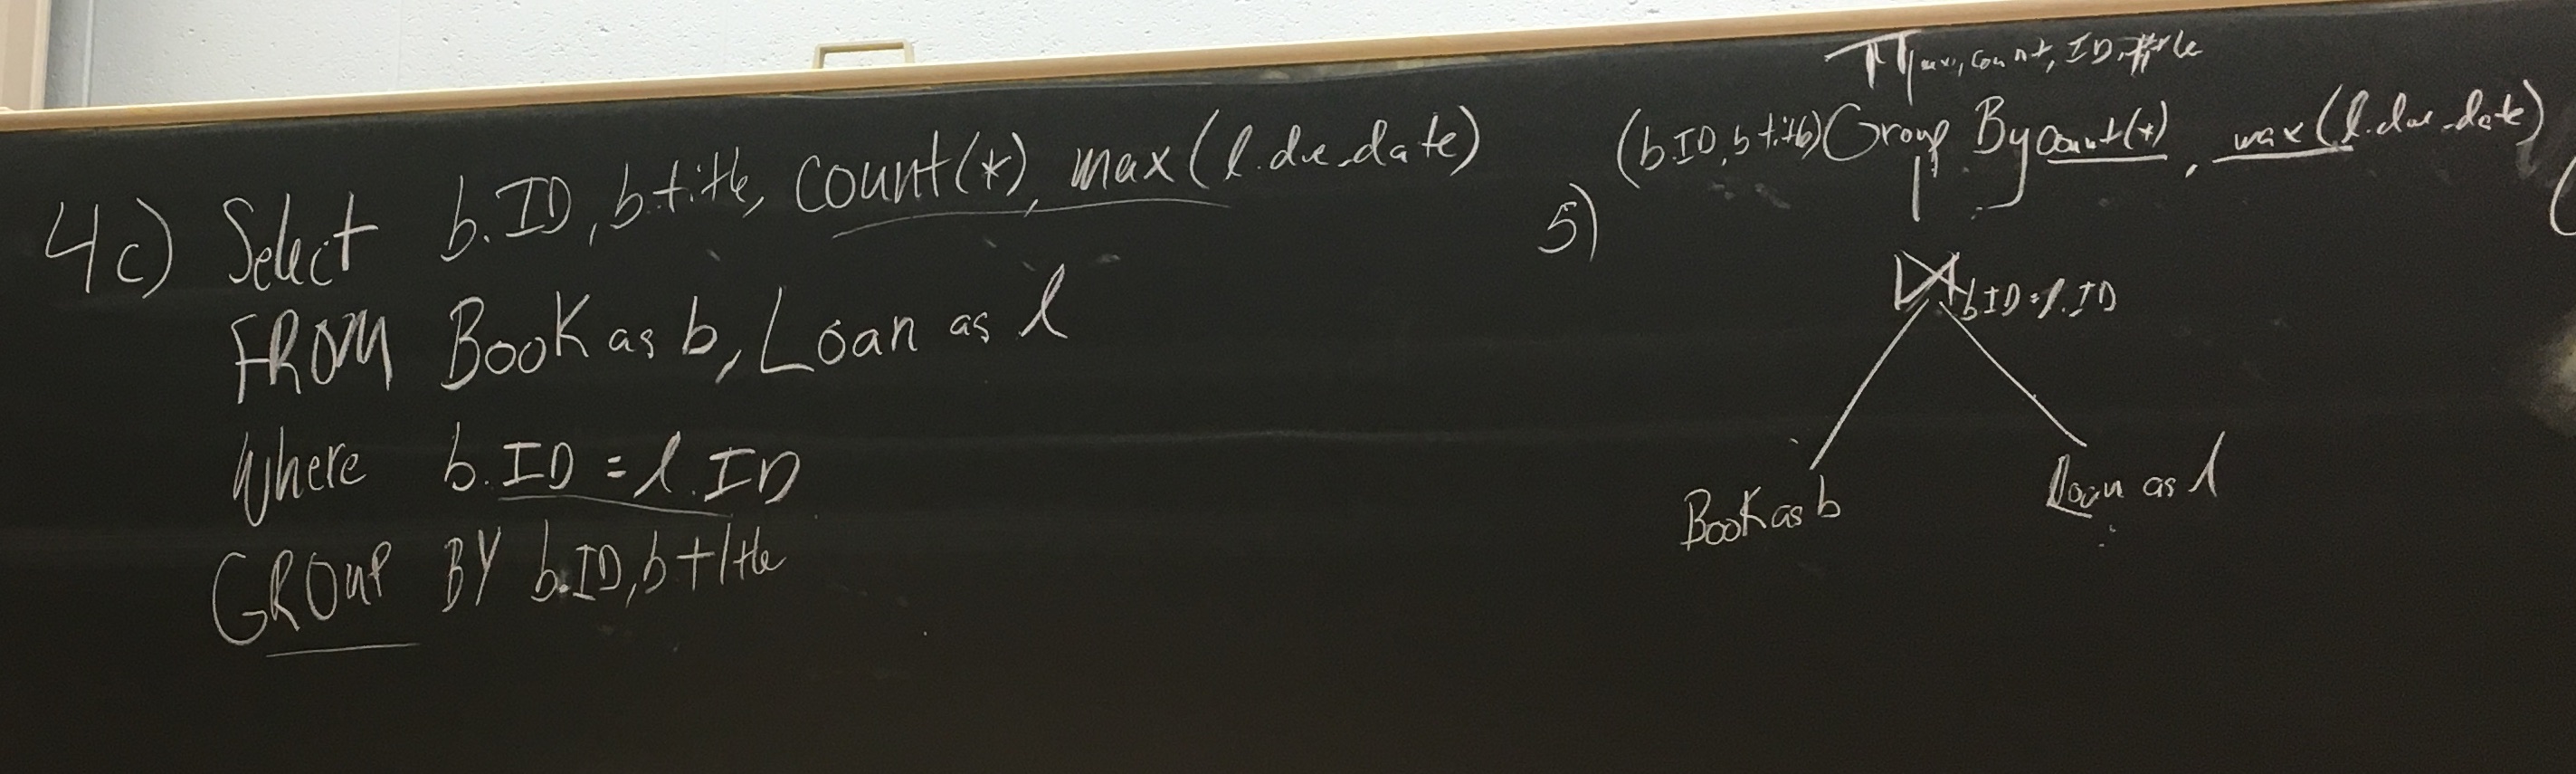 4c) Select b.ID, b.title, count(*), max(l.due_date)
FROM Book as b, Loan as l
Where b.ID = l.ID
GROUP BY b.ID, b.title
π max, count, ID, title
(b.ID, b.title) Group By count(*), max(l.due_date)
5)
⋈ b.ID = l.ID
Book as b
Loan as l